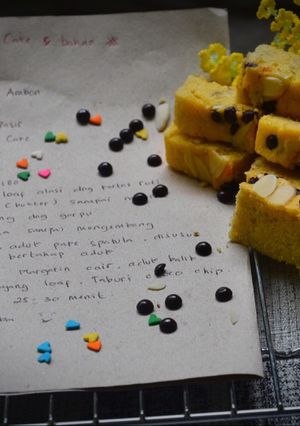 Cake & bahan
Ambon
Cake
180
loaf alasi dng kertas roti
(butter) sampai
dng garpu
sampai mengembang
aduk pake spatula. disusul
bertahap aduk
Margarin cair. aduk balik
loyang loaf. Taburi choco chip
25-30 menit.